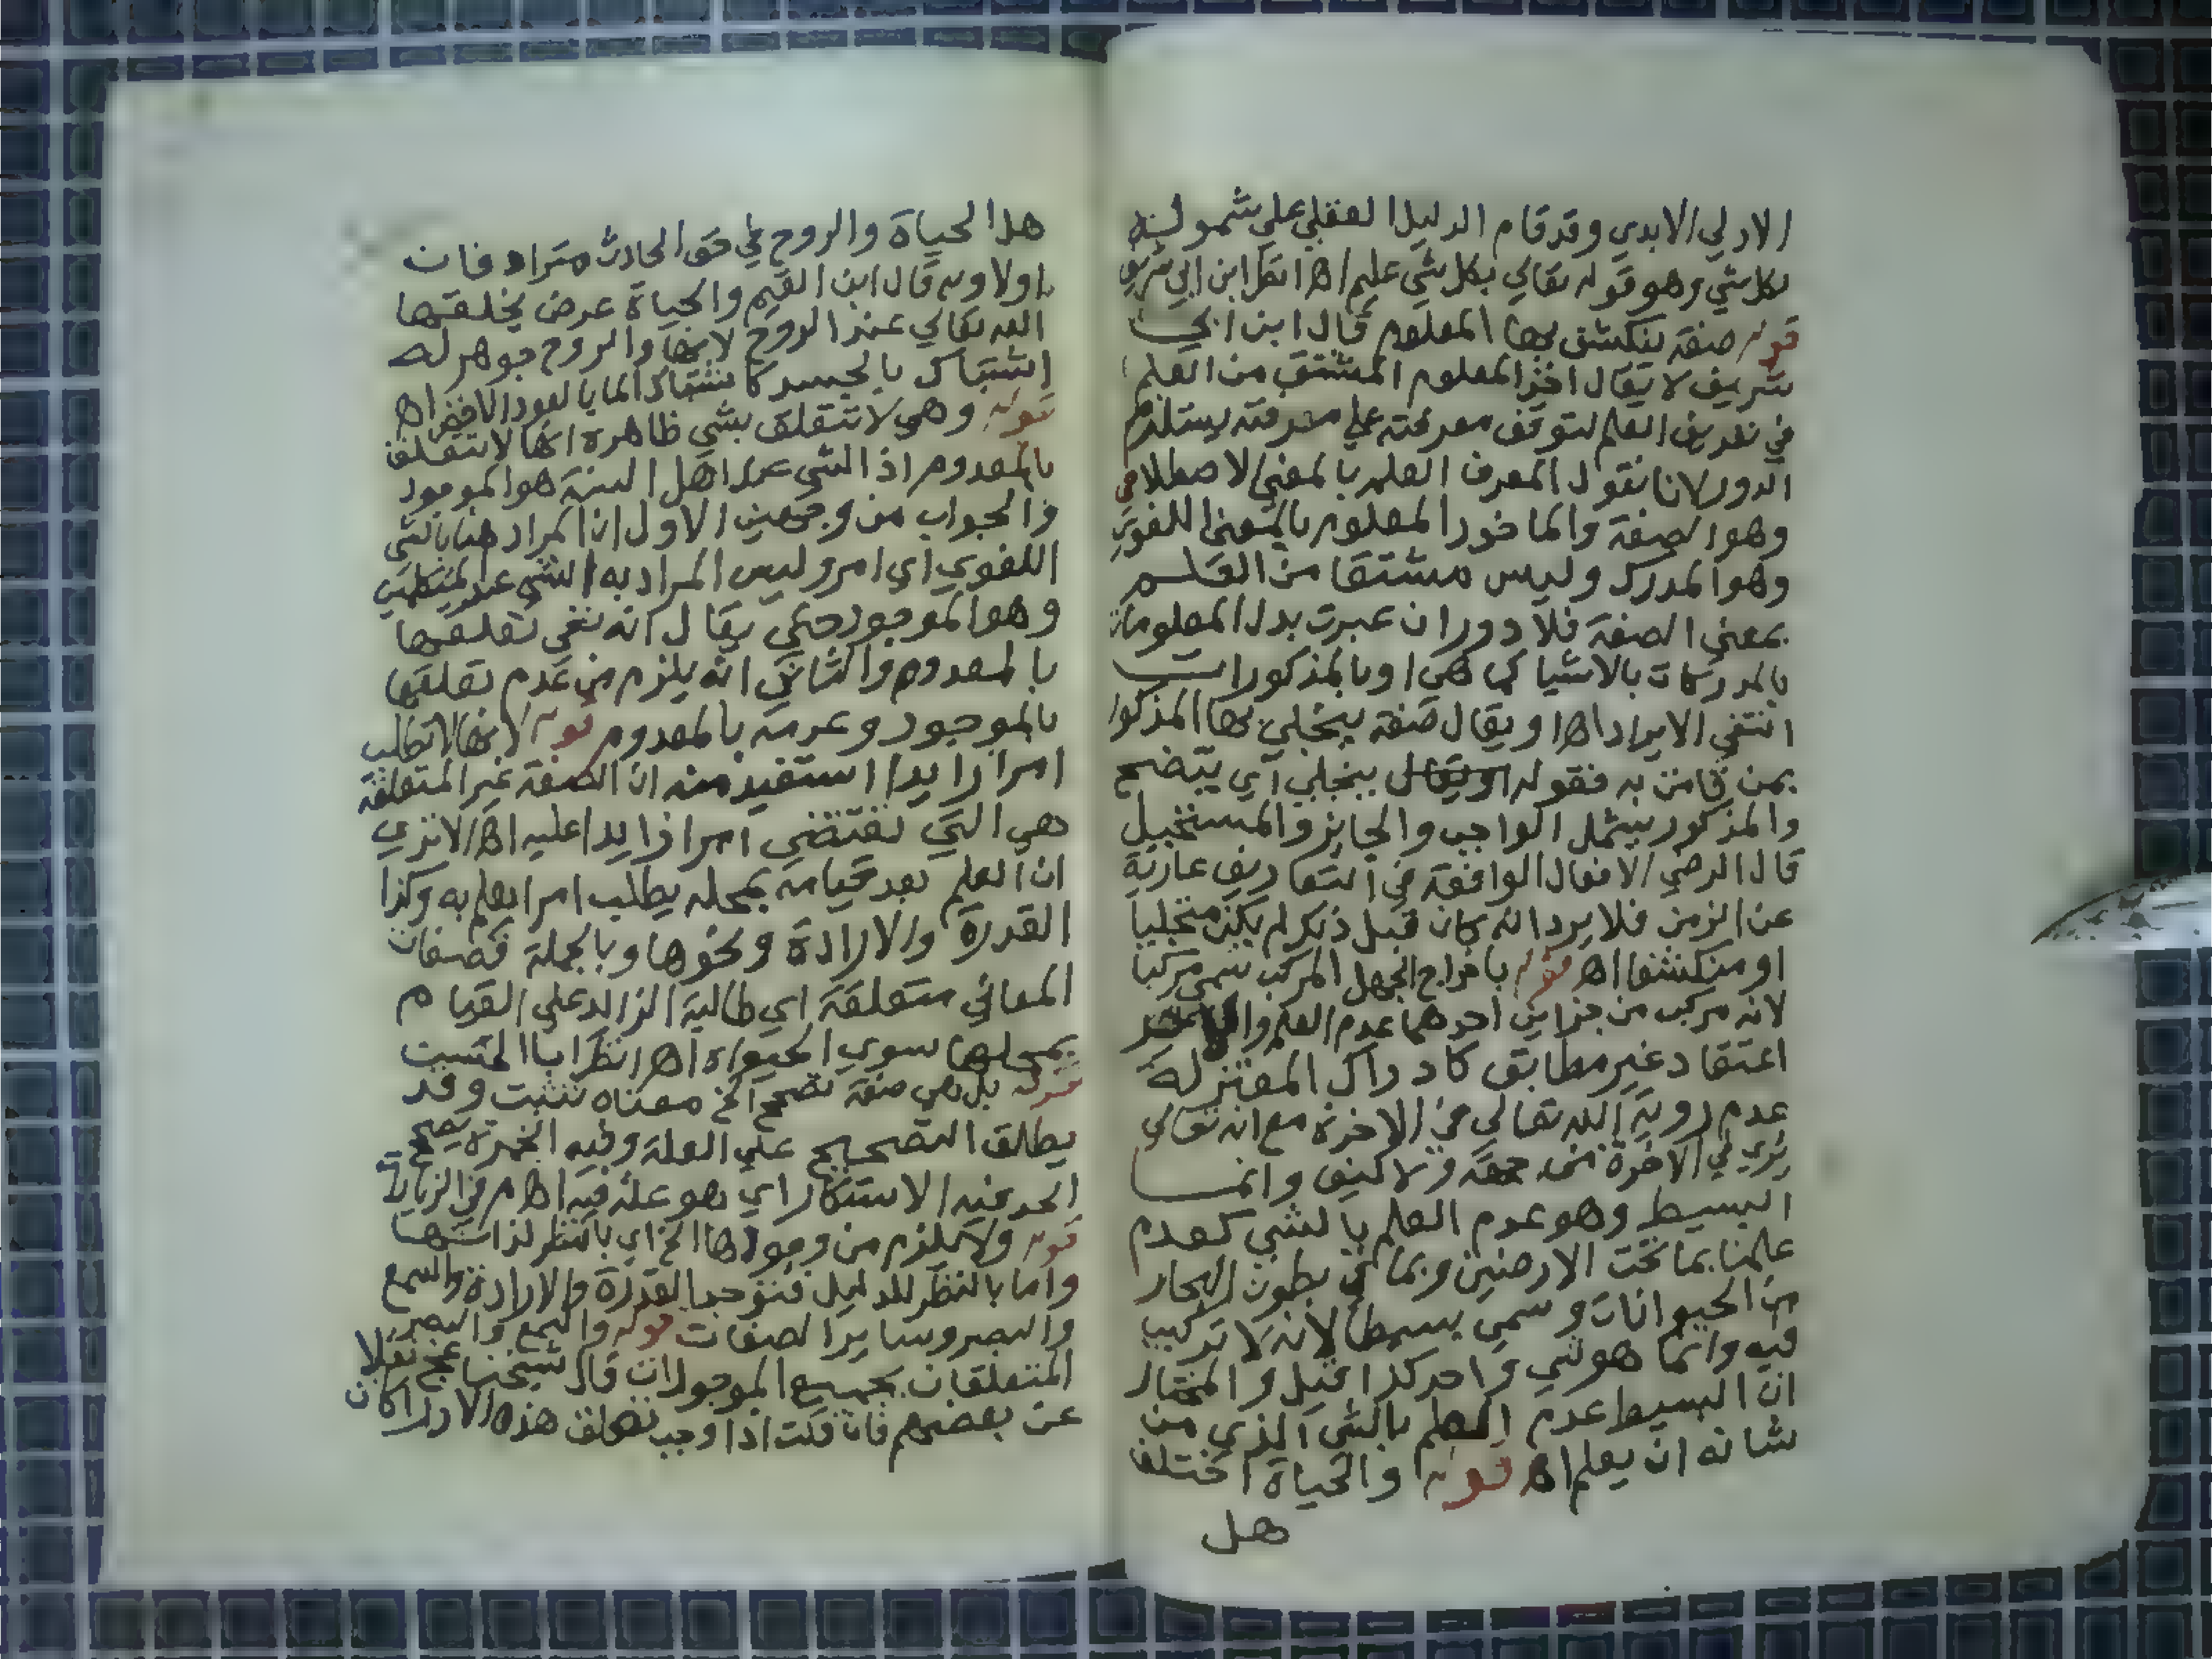 الازلي الابدي وقد قام الدليل العقلي علي شموله
لكل شي وهو قوله تعالي بكل شي عليم اه انظر ابن ابي شريف
قوله صفة ينكشف بها المعلوم قال ابن ابي
شريف لا يقال اخذ المعلوم المشتق من العلم
في تعريف العلم لتوقف معرفته علي معرفته يستلزم
الدور لانا نقول المعرف العلم بالمعني الاصطلاحي
وهو الصفة والماخوذ المعلوم بالمعني اللغوي
وهو المدرك وليس مشتقا من العلم
بمعني الصفة فلا دور ان عبرت بدل المعلومات
بالمدركات بالاشيا كما هي او بالمذكورات
انتفي الايراد اه او يقال صفة ينجلي بها المذكور
بمن قامت به فقوله ينجلي اي يتضح
والمذكور يشمل الواجب والجايز والمستحيل
قال الرضي الافعال الواقعة في التعاريف عارية
عن الزمن فلا يرد انه كان قبل ذلك لم يكن متجليا
او منكشفا اه قوله باخراج الجهل المركب سمي مركبا
لانه مركب من جزاين احدهما عدم العلم والاخر
اعتقاد غير مطابق كادراك المعتزلة
عدم روية الله تعالي في الاخرة مع انه تعالي
يري في الاخرة من جهة ولا كيف وانما
البسيط وهو عدم العلم بالشي كعدم
علمنا بما تحت الارضين وبما في بطون البحار
من الحيوانات وسمي بسيطا لانه لا تركيب
فيه وانما هو شي واحد كذا قيل والمختار
ان البسيط عدم العلم بالشي الذي من
شانه ان يعلم اه قوله والحياة اختلف
هل
هل الحياة والروح في حق الحادث مترادفان
اولا وبه قال ابن القيم والحياة عرض يخلقها
الله تعالي عند الروح لانها والروح جوهر له
اشتباك بالجسد كاشتباك الما بالعود الاخضر اه
قوله وهي لا تتعلق بشي ظاهره انها لا تتعلق
بالمعدوم اذ الشي عند اهل السنة هو الموجود
والجواب من وجهين الاول ان المراد هنا بالشي
اللغوي اي امر وليس المراد به الشي عند المتكلمين
وهو الموجود حتي يقال انه نفي تعلقها
بالمعدوم والثاني انه يلزم من عدم تعلقها
بالموجود وعدمه بالمعدوم قوله لانها لا تطلب
امرا زايدا استفيد منه ان الصفة غير المتعلقة
هي التي تقتضي امرا زايدا عليه اه الا تري
ان العلم بعد قيامه بمحله يطلب امرا يعلم به وكذا
القدرة والارادة ونحوها وبالجملة فصفات
المعاني متعلقة اي طالبة لزايد علي القيام
بمحلها سوي الحيواة اه انظر ابا المتسبت
قوله بل هي صفة تصحح الخ معناه تثبت وقد
يطلق التصحيح علي العلة وفيه الخمرة يصح
الحد فيه الاستنكار اي هو علة فيه اه م في الزيادة
قوله ولا يلزم من وجودها الخ اي بالنظر لذاتها
واما بالنظر للدليل فتوجب القدرة والارادة والسمع
والبصر وساير الصفات قوله والسمع والبصر
المتعلقان بجميع الموجودات قال شيخنا عج نقلا
عن بعضهم فان قلت اذا وجب تعلق هذه الادراكات